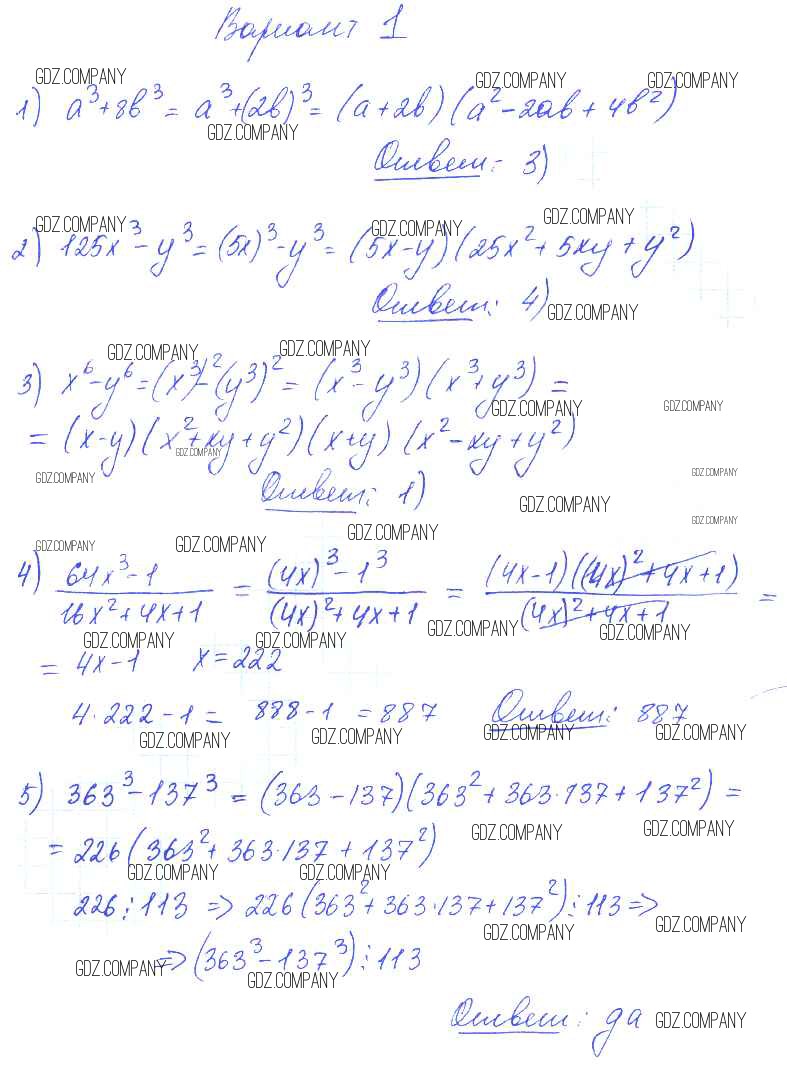 Вариант 1
GDZ.COMPANY GDZ.COMPANY GDZ.COMPANY
1) a³+8b³ = a³+(2b)³ = (a+2b)(a²-2ab+4b²)
GDZ.COMPANY
Ответ: 3)
GDZ.COMPANY GDZ.COMPANY GDZ.COMPANY
2) 125x³-y³ = (5x)³-y³ = (5x-y)(25x²+5xy+y²)
Ответ: 4) GDZ.COMPANY
GDZ.COMPANY GDZ.COMPANY
3) x⁶-y⁶ = (x³)²-(y³)² = (x³-y³)(x³+y³) =
GDZ.COMPANY GDZ.COMPANY
= (x-y)(x²+xy+y²)(x+y)(x²-xy+y²)
GDZ.COMPANY GDZ.COMPANY GDZ.COMPANY
Ответ: 1) GDZ.COMPANY
GDZ.COMPANY GDZ.COMPANY GDZ.COMPANY GDZ.COMPANY
4) (64x³-1)/(16x²+4x+1) = ((4x)³-1³)/((4x)²+4x+1) = ((4x-1)((4x)²+4x+1))/((4x)²+4x+1) =
GDZ.COMPANY GDZ.COMPANY GDZ.COMPANY GDZ.COMPANY
= 4x-1 x=222
4·222-1 = 888-1 = 887 Ответ: 887
GDZ.COMPANY GDZ.COMPANY GDZ.COMPANY GDZ.COMPANY
5) 363³-137³ = (363-137)(363²+363·137+137²) =
GDZ.COMPANY GDZ.COMPANY
= 226(363²+363·137+137²)
GDZ.COMPANY GDZ.COMPANY
226⋮113 => 226(363²+363·137+137²)⋮113 =>
GDZ.COMPANY GDZ.COMPANY
=> (363³-137³)⋮113
GDZ.COMPANY GDZ.COMPANY
Ответ: да GDZ.COMPANY